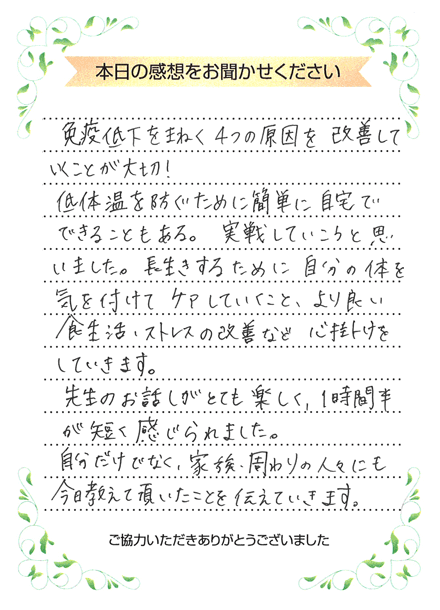 本日の感想をお聞かせください
免疫低下をまねく4つの原因を改善して
いくことが大切!
低体温を防ぐために簡単に自宅で
できることもある。実戦していこうと思
いました。長生きするために自分の体を
気を付けてケアしていくこと、より良い
食生活、ストレスの改善など心掛けを
していきます。
先生のお話しがとても楽しく、1時間半
が短く感じられました。
自分だけでなく、家族、周わりの人々にも
今日教えて頂いたことを伝えていきます。
ご協力いただきありがとうございました